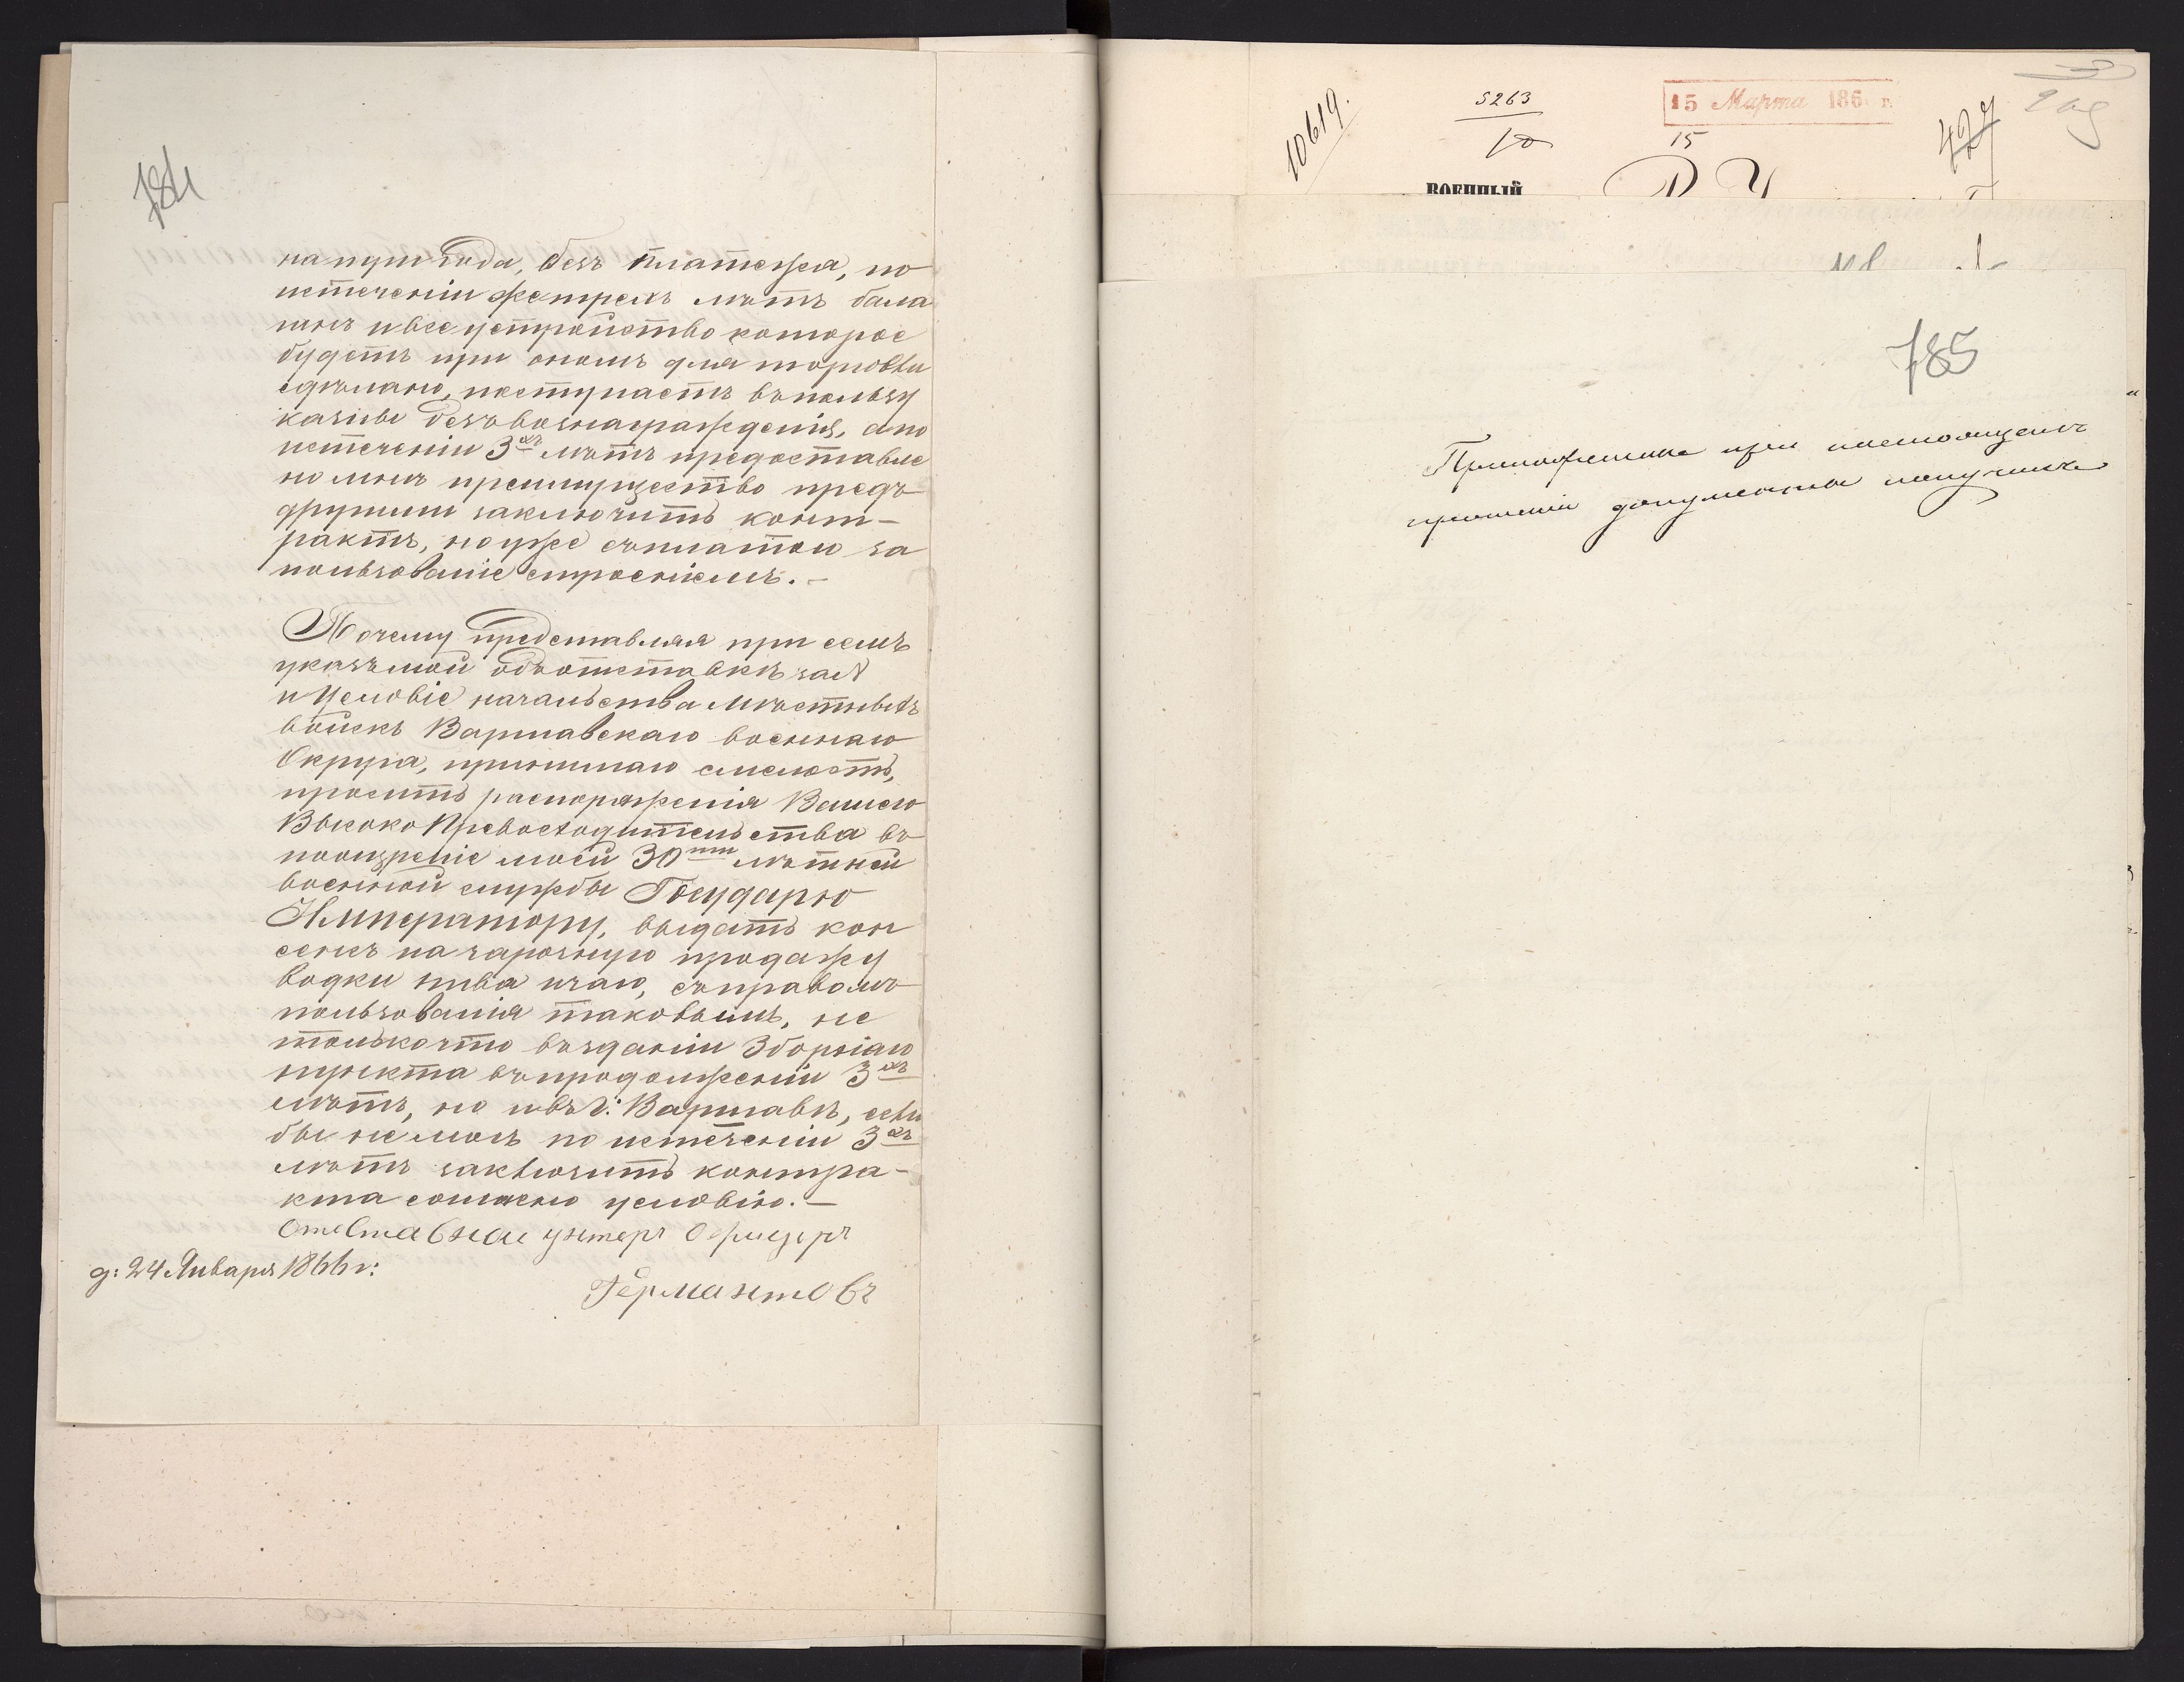 784
на три года, безъ платежа, по
истеченіи же трехъ лѣтъ бала
ганъ и все устройство которое
будетъ при ономъ для торговли
сдѣлано, поступаетъ въ пользу
казны безъ вознагражденія, а по
истеченіи 3хъ лѣтъ предоставле
но мнѣ преимущество предъ
другими заключить конт-
рактъ, но уже съ платою за
пользованіе строеніемъ. –
Почему представляя при семъ
указъ мой объ отставкѣ за №
и Условіе начальства мѣстныхъ
войскъ Варшавскаго военнаго
Округа, принимаю смелость,
просить распоряженія Вашего
ВысокоПревосходительства въ
поощреніе моей 30ти лѣтней
военной службы Государю
Императору, выдать кон
сенсъ на чарочную продажу
водки пива и чаю, съ правомъ
пользованія таковымъ, не
только что въ зданіи Зборнаго
пункта въ продолженіи 3хъ
лѣтъ, но и въ г: Варшавѣ, если
бы не могъ по истеченіи 3хъ
лѣтъ заключить контра-
кта согласно условію. –
Отставной унтеръ Офицеръ
д: 24 Января 1866 г:
Германтовъ
10619.
5263
10
15 Марта 186 г.
15
427
ВОЕННЫЙ
785
Приложенные при настоящемъ
прошеніи документы получилъ